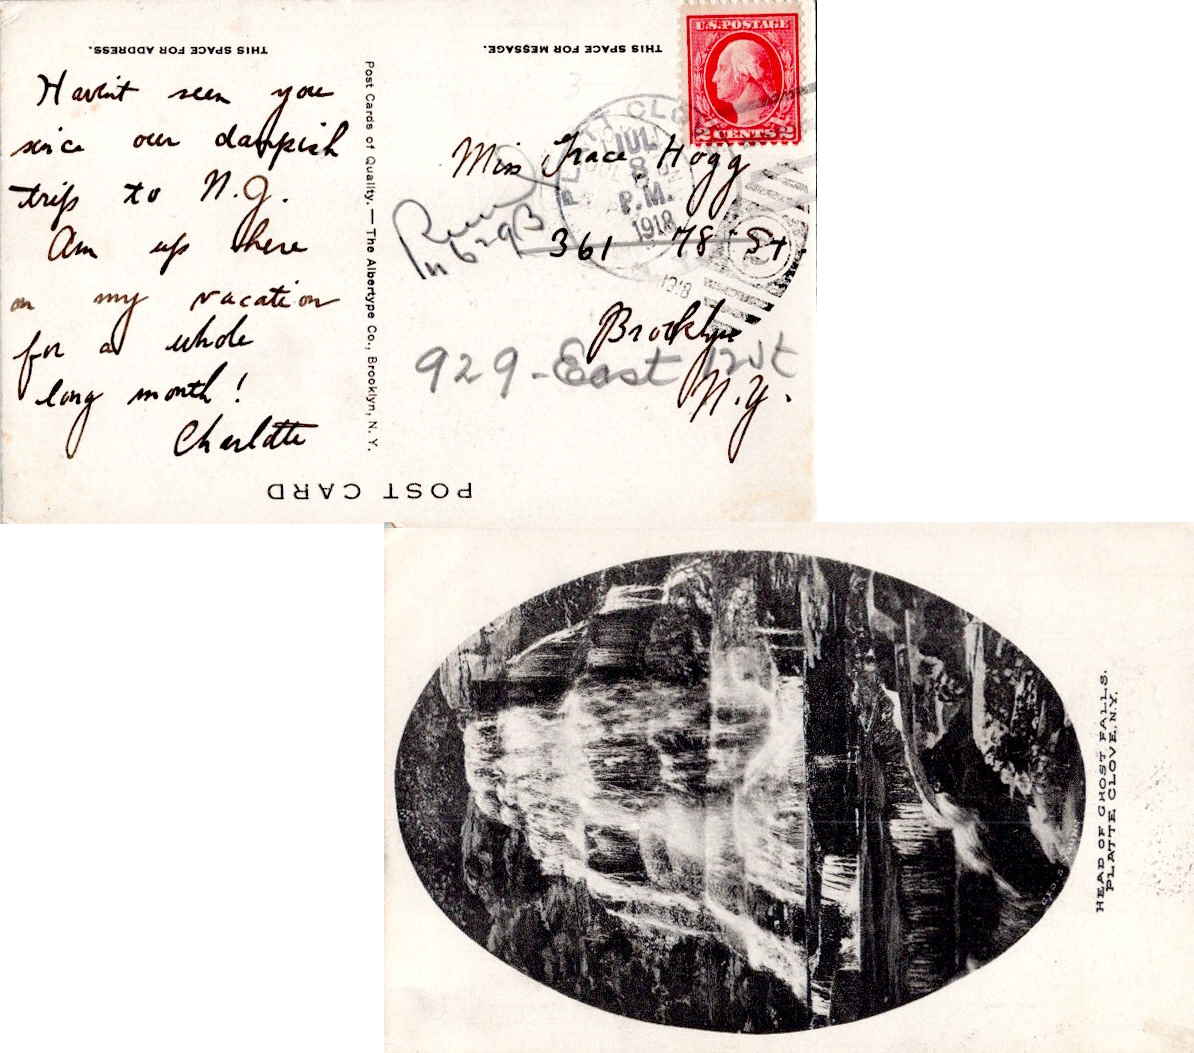 THIS SPACE FOR ADDRESS.
THIS SPACE FOR MESSAGE.
U.S. POSTAGE
2 CENTS 2
Haven't seen you
since our dampish
trip to N.J.
Am up here
on my vacation
for a whole
long month!
Charlotte
Post Cards of Quality. — The Albertype Co., Brooklyn, N. Y.
JUL
8
P.M.
1918
Miss Grace Hogg
361 78 St
Brooklyn
N.Y.
929 - East
POST CARD
HEAD OF GHOST FALLS.
PLATTE CLOVE, N.Y.